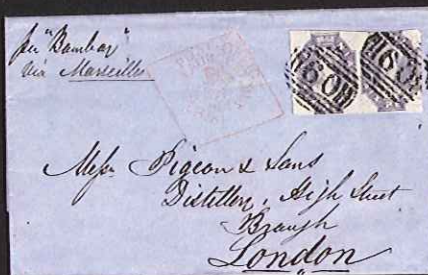 per "Bombay"
via Marseilles
60
60
Messrs Pigeon & Sons
Distillers, High Street
Borough
London